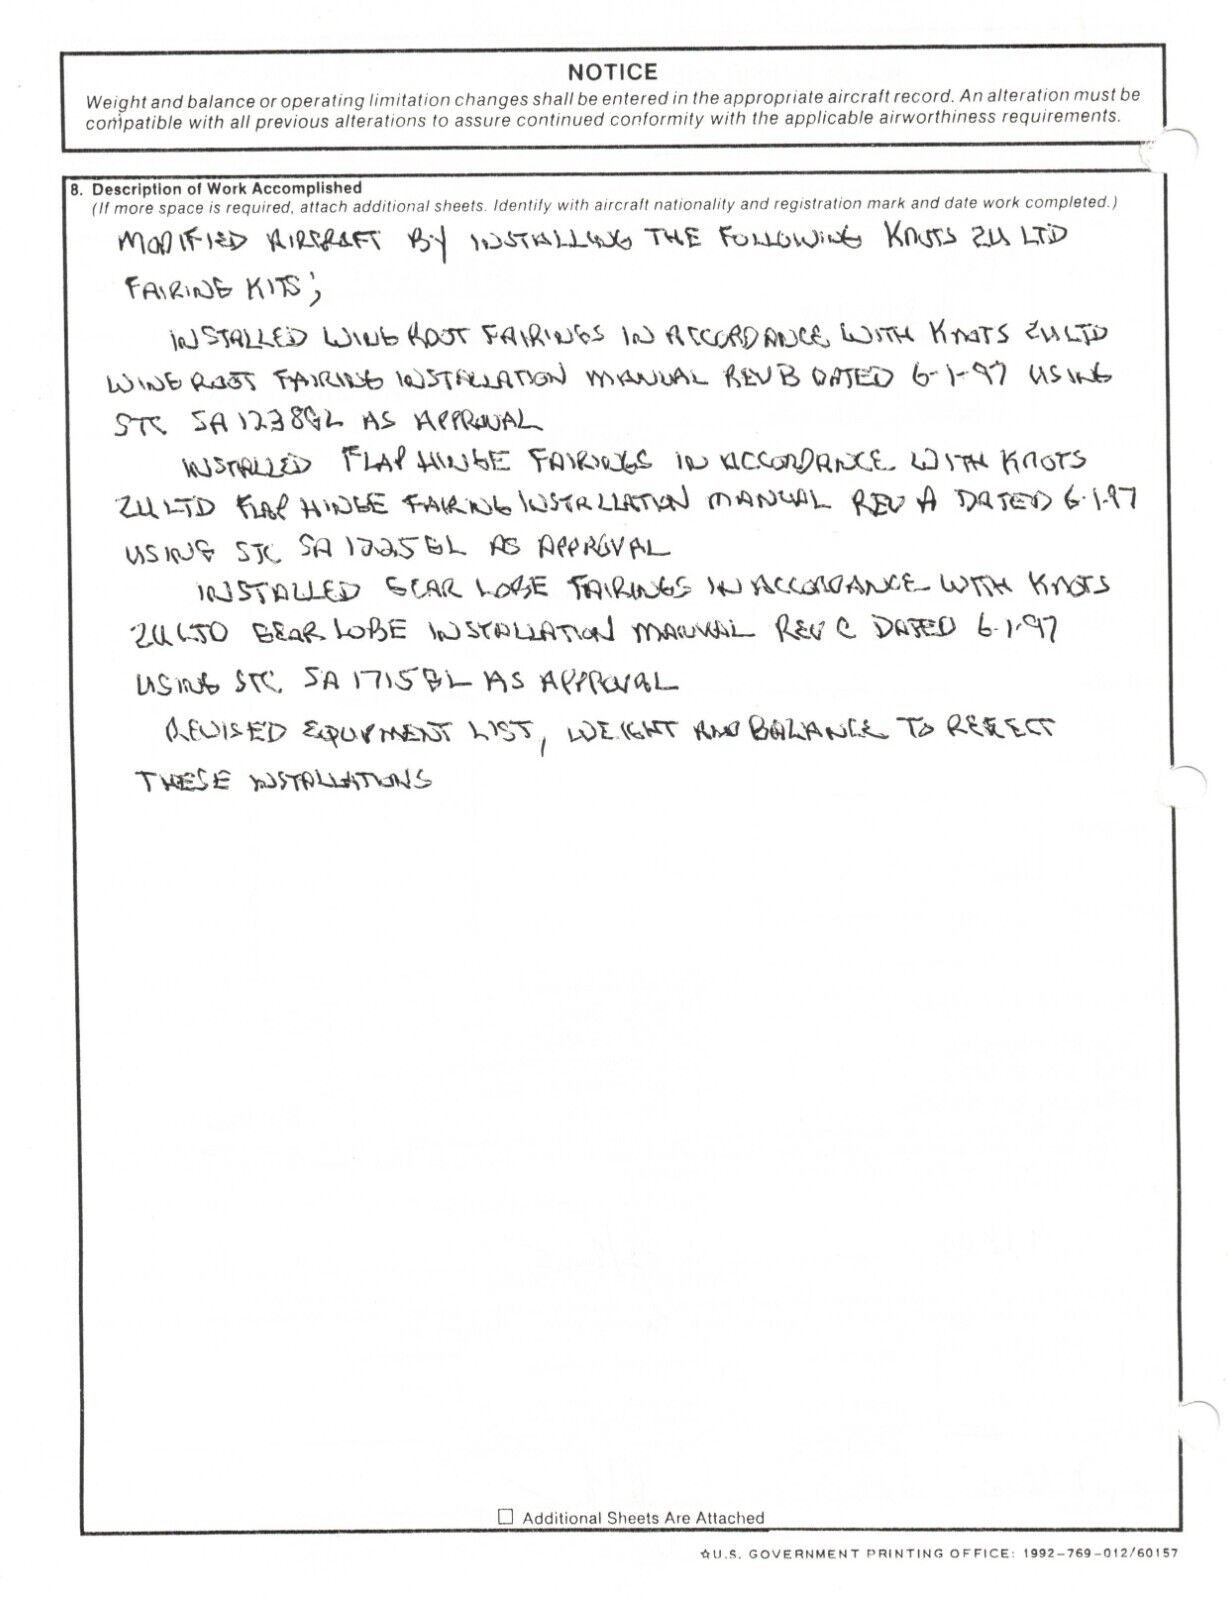 NOTICE
Weight and balance or operating limitation changes shall be entered in the appropriate aircraft record. An alteration must be
compatible with all previous alterations to assure continued conformity with the applicable airworthiness requirements.
8. Description of Work Accomplished
(If more space is required, attach additional sheets. Identify with aircraft nationality and registration mark and date work completed.)
MODIFIED AIRCRAFT BY INSTALLING THE FOLLOWING KNOTS 2U LTD
FAIRING KITS;
INSTALLED WING ROOT FAIRINGS IN ACCORDANCE WITH KNOTS 2U LTD
WING ROOT FAIRING INSTALLATION MANUAL REV B DATED 6-1-97 USING
STC SA1238GL AS APPROVAL
INSTALLED FLAP HINGE FAIRINGS IN ACCORDANCE WITH KNOTS
2U LTD FLAP HINGE FAIRING INSTALLATION MANUAL REV A DATED 6-1-97
USING STC SA1225GL AS APPROVAL
INSTALLED GEAR LOBE FAIRINGS IN ACCORDANCE WITH KNOTS
2U LTD GEAR LOBE INSTALLATION MANUAL REV C DATED 6-1-97
USING STC SA1715GL AS APPROVAL
REVISED EQUIPMENT LIST, WEIGHT AND BALANCE TO REFLECT
THESE INSTALLATIONS
☐ Additional Sheets Are Attached
☆U.S. GOVERNMENT PRINTING OFFICE: 1992-769-012/60157